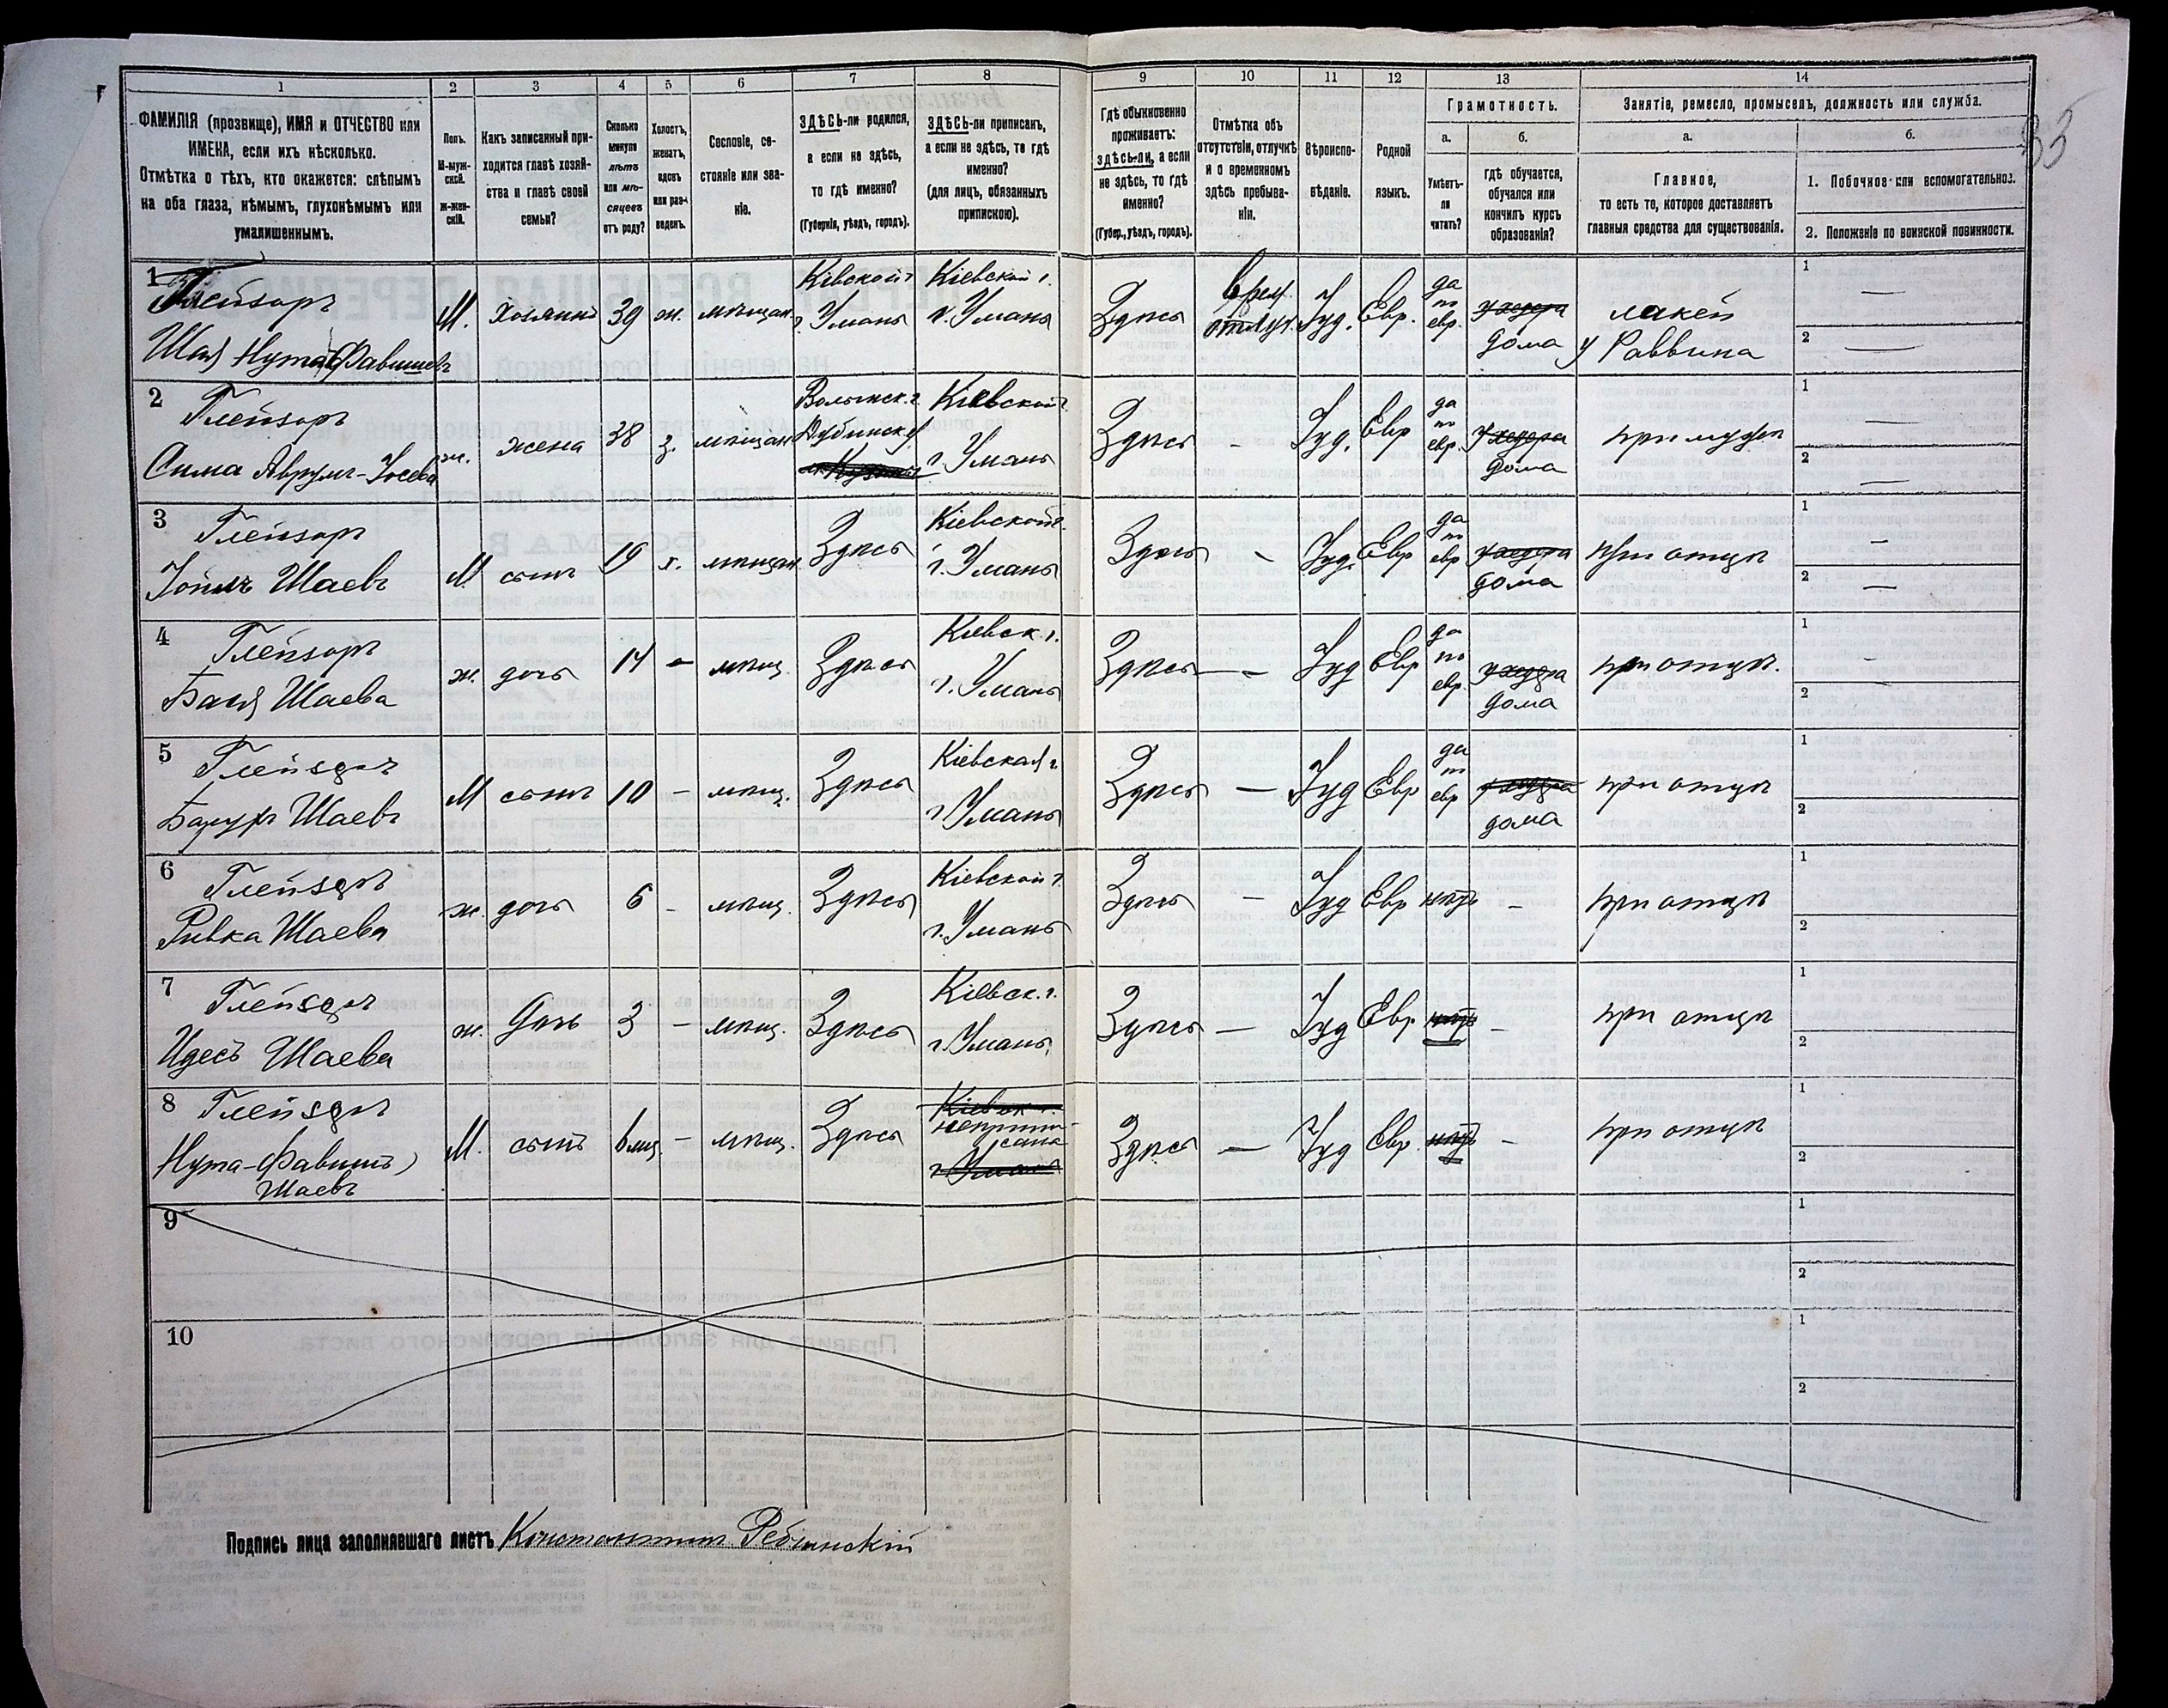 1 2 3 4 5 6 7 8 9 10 11 12 13 14
ФАМИЛІЯ (прозвище), ИМЯ и ОТЧЕСТВО или
ИМЕНА, если ихъ нѣсколько.
Отмѣтка о тѣхъ, кто окажется: слѣпымъ
на оба глаза, нѣмымъ, глухонѣмымъ или
умалишеннымъ.
Полъ.
М-муж-
ской.
ж-жен-
скій.
Какъ записанный при-
ходится главѣ хозяй-
ства и главѣ своей
семьи?
Сколько
минуло
лѣтъ
или мѣ-
сяцевъ
отъ роду?
Холостъ,
женатъ,
вдовъ
или раз-
веденъ.
Сословіе, со-
стояніе или зва-
ніе.
ЗДѢСЬ-ли родился,
а если не здѣсь,
то гдѣ именно?
(Губернія, уѣздъ, городъ).
ЗДѢСЬ-ли приписанъ,
а если не здѣсь, то гдѣ
именно?
(для лицъ, обязанныхъ
припискою).
Гдѣ обыкновенно
проживаетъ:
здѣсь-ли, а если
не здѣсь, то гдѣ
именно?
(Губер., уѣздъ, городъ).
Отмѣтка объ
отсутствіи, отлучкѣ
и о временномъ
здѣсь пребыва-
ніи.
Вѣроиспо-
вѣданіе.
Родной
языкъ.
Грамотность.
а.
Умѣетъ-
ли
читать?
б.
гдѣ обучается,
обучался или
кончилъ курсъ
образованія?
Занятіе, ремесло, промыселъ, должность или служба.
а.
Главное,
то есть то, которое доставляетъ
главныя средства для существованія.
б.
1. Побочное или вспомогательное.
2. Положеніе по воинской повинности.
1
Глейзоръ
Шая Нута Фавишевъ
М. Хозяинъ 39 ж. мѣщан.
Кіевской г.
г. Умань
Кіевской г.
г. Умань
Здѣсь
врем.
отлуч.
Іуд. Евр.
да
по
евр.
дома
лакей
у Раввина
1
2
2
Глейзоръ
Сима Аврумъ-Іосева
ж. жена 38 з. мѣщан
Волынск. г.
Дубинск. у.
Кіевской г.
г. Умань
Здѣсь - Іуд. Евр
да
по
евр.
дома
при мужѣ
1
2
3
Глейзоръ
Шаевъ
М сынъ 19 х. мѣщан.
Здѣсь
Кіевской г.
г. Умань
Здѣсь - Іуд. Евр
да
по
евр
дома
при отцѣ
1
2
4
Глейзоръ
Бася Шаева
ж. дочь 14 - мѣщ.
Здѣсь
Кіевск. г.
г. Умань
Здѣсь - Іуд Евр
да
по
евр.
дома
при отцѣ.
1
2
5
Глейзеръ
Шаевъ
М сынъ 10 - мѣщ.
Здѣсь
Кіевская г.
г. Умань
Здѣсь - Іуд Евр
да
по
евр
дома
при отцѣ
1
2
6
Глейзеръ
Ривка Шаева
ж. дочь 6 - мѣщ.
Здѣсь
Кіевской г.
г. Умань
Здѣсь - Іуд Евр нѣтъ -
при отцѣ
1
2
7
Глейзеръ
Идесъ Шаева
ж. Дочь 3 - мѣщ.
Здѣсь
Кіевск. г.
г. Умань
Здѣсь - Іуд Евр нѣтъ -
при отцѣ
1
2
8
Глейзеръ
Нута-Фавишъ
Шаевъ
М. сынъ 6 мѣс. - мѣщ.
Здѣсь
Кіевск г.
неприпи-
санъ
г. Умань
Здѣсь - Іуд Евр. нѣтъ -
при отцѣ
1
2
9
1
2
10
1
2
Подпись лица заполнявшаго листъ Константинъ